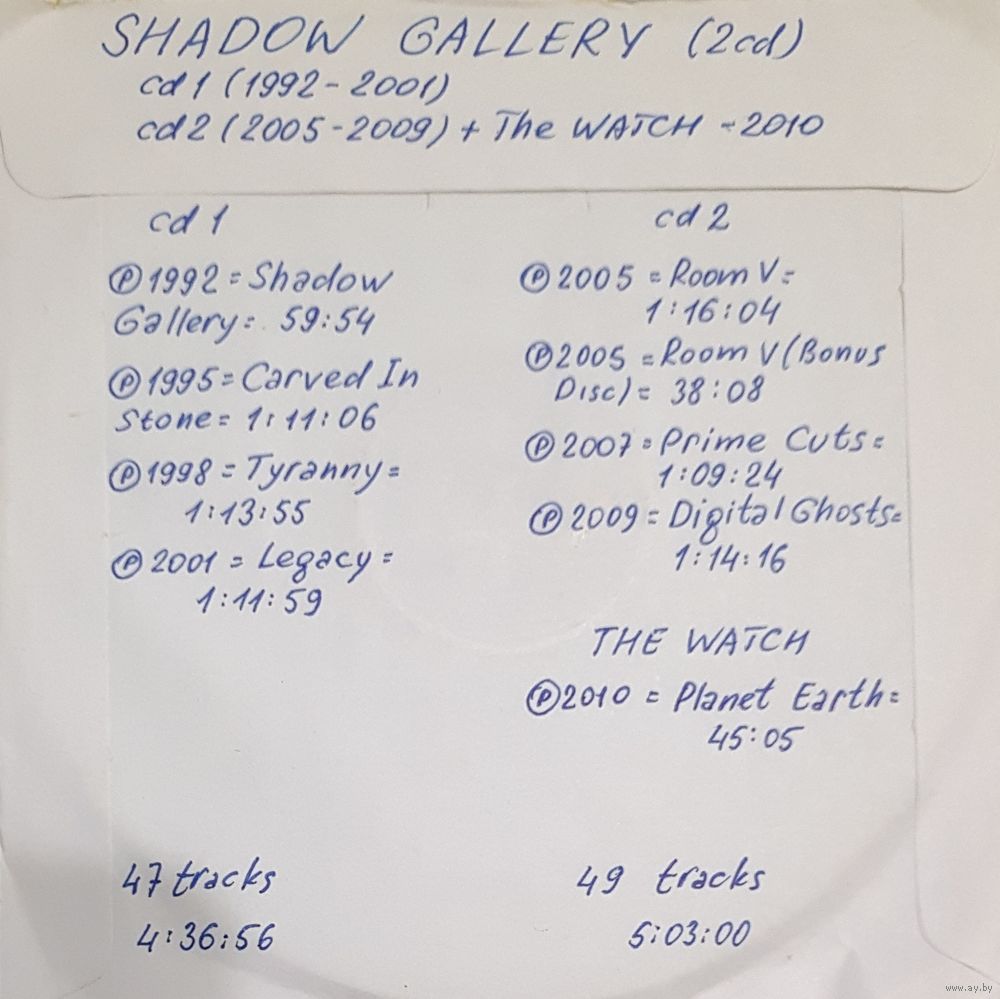 SHADOW GALLERY (2cd)
cd 1 (1992 - 2001)
cd 2 (2005 - 2009) + The WATCH - 2010
cd 1
Ⓟ 1992 = Shadow
Gallery = 59:54
Ⓟ 1995 = Carved In
Stone = 1:11:06
Ⓟ 1998 = Tyranny =
1:13:55
Ⓟ 2001 = Legacy =
1:11:59
47 tracks
4:36:56
cd 2
Ⓟ 2005 = Room V =
1:16:04
Ⓟ 2005 = Room V (Bonus
Disc) = 38:08
Ⓟ 2007 = Prime Cuts =
1:09:24
Ⓟ 2009 = Digital Ghosts =
1:14:16
THE WATCH
Ⓟ 2010 = Planet Earth =
45:05
49 tracks
5:03:00
www.ay.by